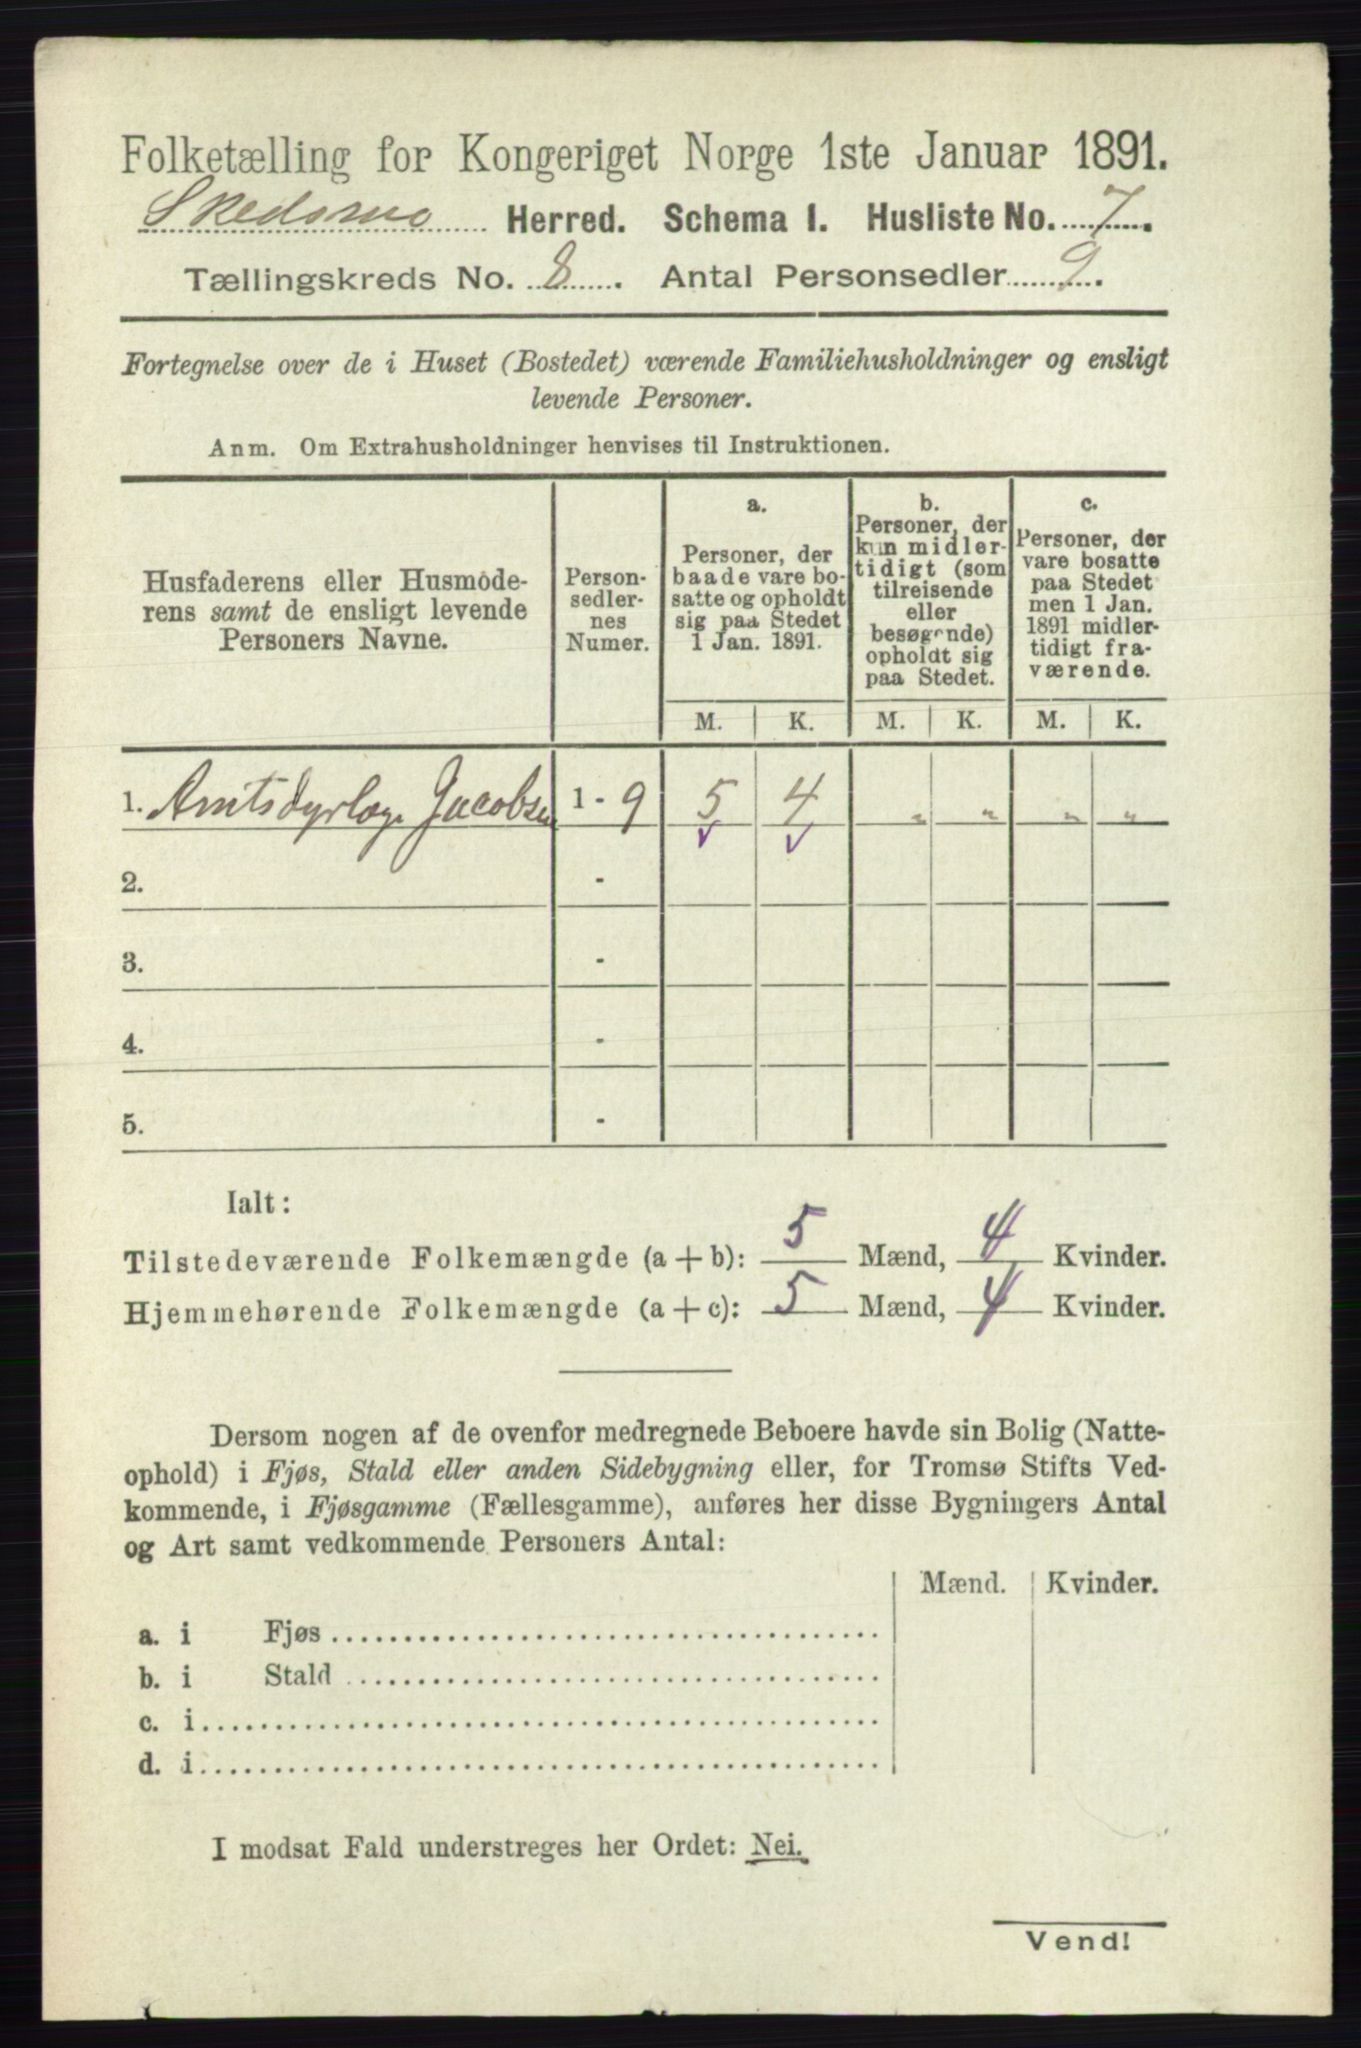 Folketælling for Kongeriget Norge 1ste Januar 1891.
Skedsmo Herred. Schema I. Husliste No. 7.
Tællingskreds No. 8. Antal Personsedler 9.
Fortegnelse over de i Huset (Bostedet) værende Familiehusholdninger og ensligt
levende Personer.
Anm. Om Extrahusholdninger henvises til Instruktionen.
Husfaderens eller Husmode-
rens samt de ensligt levende
Personers Navne.
Person-
sedler-
nes
Numer.
a.
Personer, der
baade vare bo-
satte og opholdt
sig paa Stedet
1 Jan. 1891.
b.
Personer, der
kun midler-
tidigt (som
tilreisende
eller
besøgende)
opholdt sig
paa Stedet.
c.
Personer, der
vare bosatte
paa Stedet
men 1 Jan.
1891 midler-
tidigt fra-
værende.
M. K. M. K. M. K.
1. Amtsdyrlæge Jacobsen 1 - 9 5 4 " " " "
2. -
3. -
4. -
5. -
Ialt:
Tilstedeværende Folkemængde (a + b): 5 Mænd, 4 Kvinder.
Hjemmehørende Folkemængde (a + c): 5 Mænd, 4 Kvinder.
Dersom nogen af de ovenfor medregnede Beboere havde sin Bolig (Natte-
ophold) i Fjøs, Stald eller anden Sidebygning eller, for Tromsø Stifts Ved-
kommende, i Fjøsgamme (Fællesgamme), anføres her disse Bygningers Antal
og Art samt vedkommende Personers Antal:
Mænd. Kvinder.
a. i Fjøs
b. i Stald
c. i
d. i
I modsat Fald understreges her Ordet: Nei.
Vend!